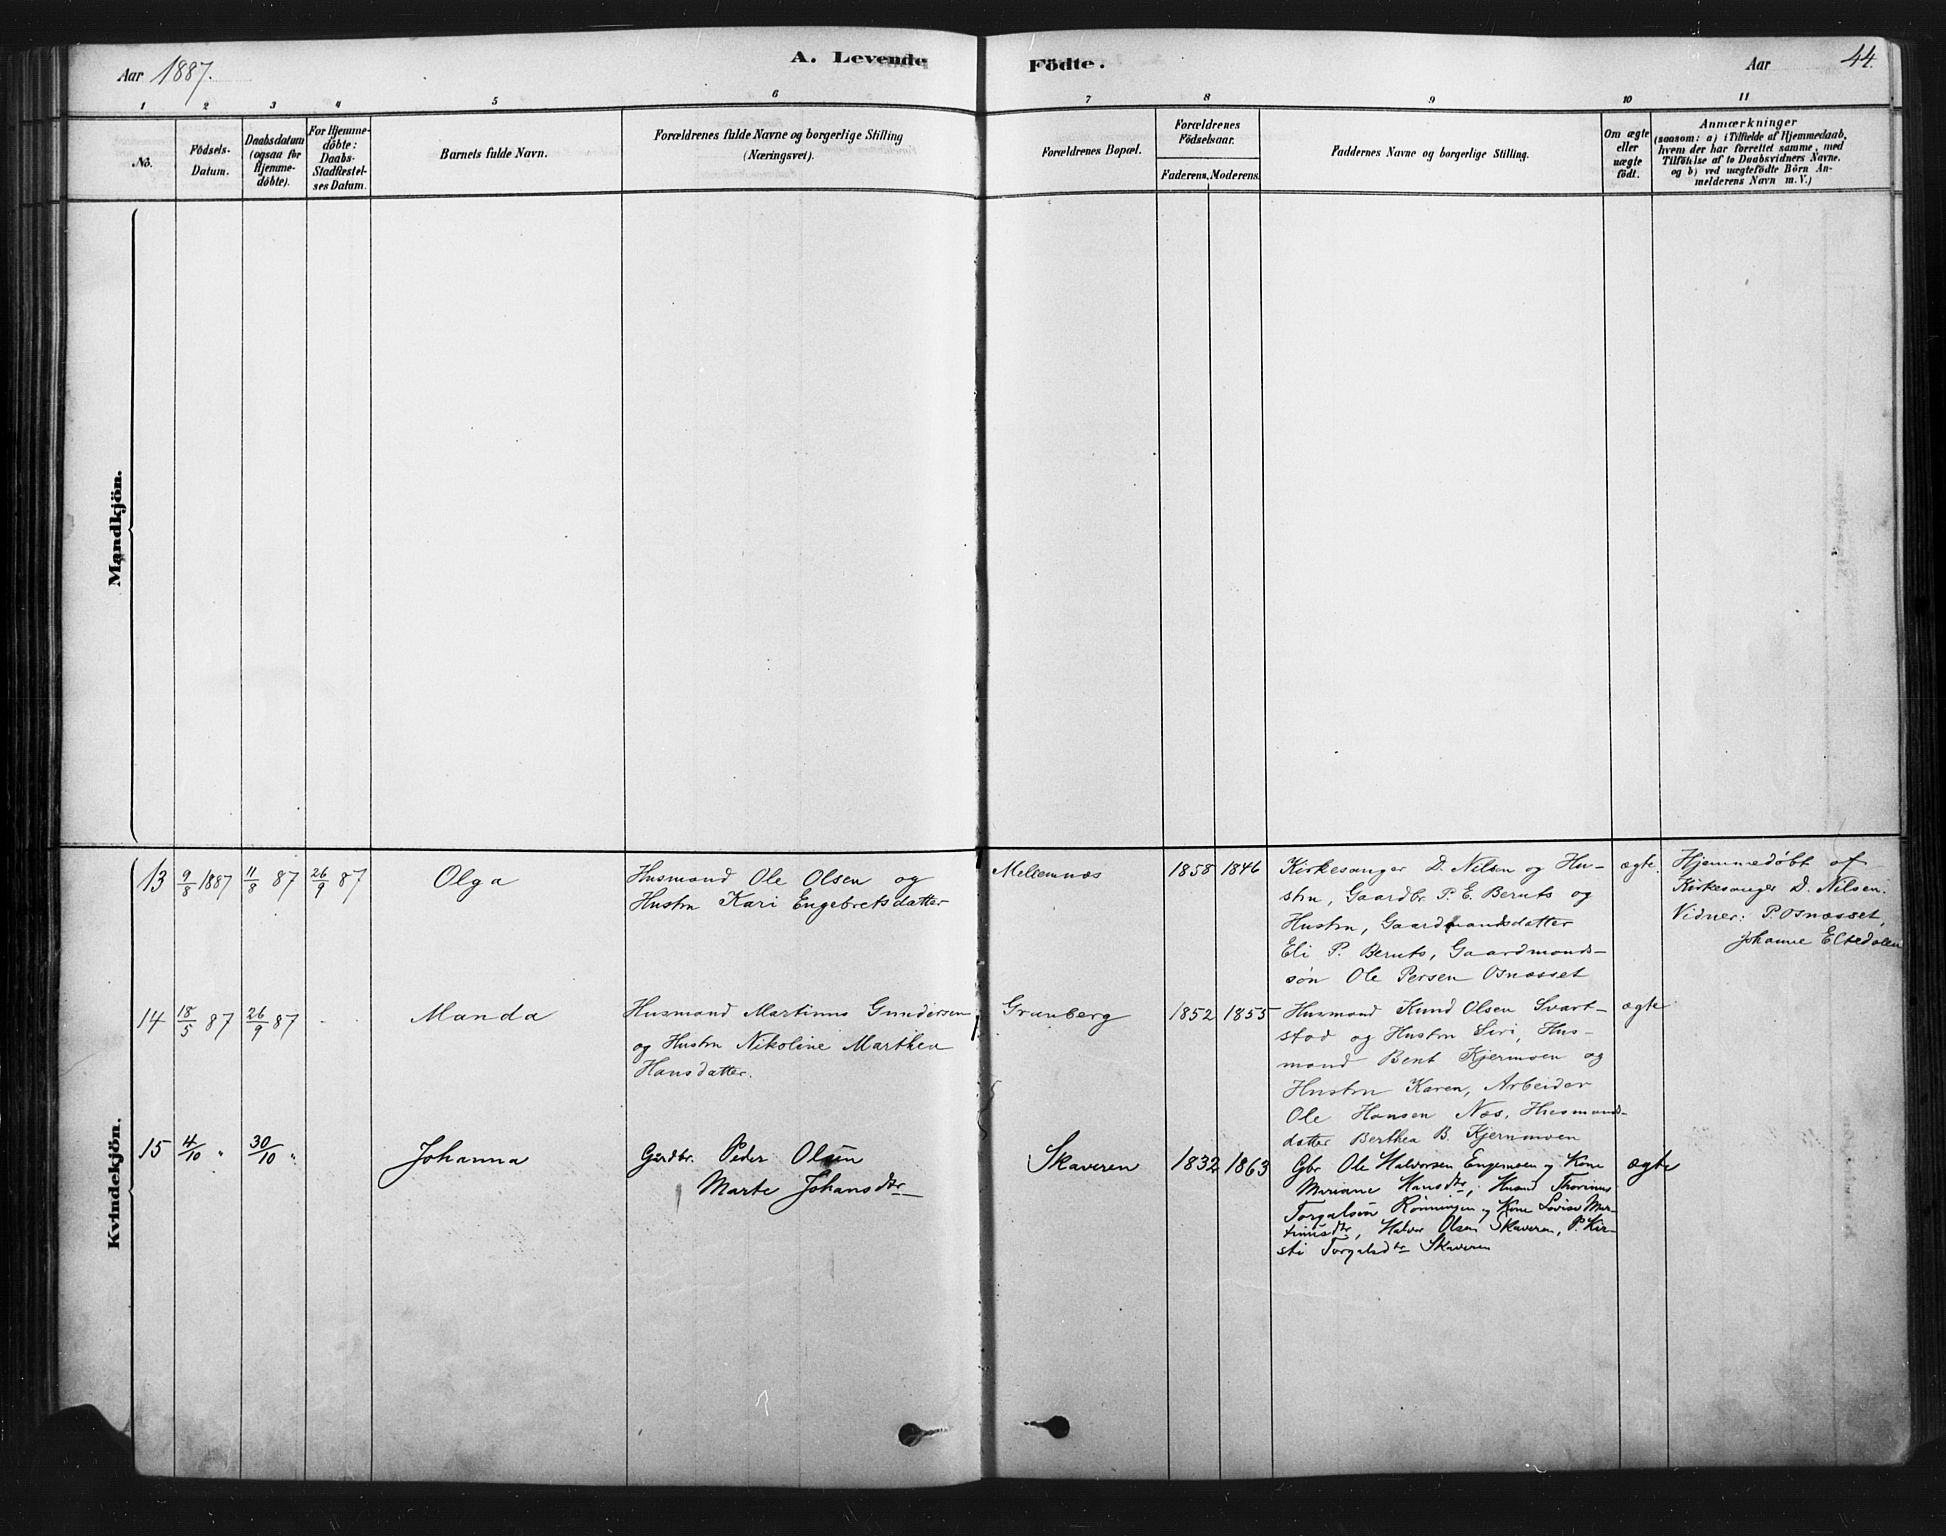 Aar 1887.
A. Levende Födte.
Aar
44.
1 2 3 4 5 6 7 8 9 10 11
No.
Födsels-
Datum.
Daabsdatum
(ogsaa for
Hjemme-
döbte).
For Hjemme-
döbte:
Daabs-
Stadfestel-
ses Datum.
Barnets fulde Navn.
Forældrenes fulde Navne og borgerlige Stilling
(Næringsvei).
Forældrenes Bopæl.
Forældrenes
Födselsaar.
Faderens. Moderens.
Faddernes Navne og borgerlige Stilling.
Om ægte
eller
uægte
födt.
Anmærkninger
(saasom: a) i Tilfælde af Hjemmedaab,
hvem der har forrettet samme, med
Tilföielse af to Daabsvidners Navne.
og b) ved uægtefödte Börn An-
melderens Navn m. V.)
Mandkjön.
Kvindekjön.
13
9/8 1887
11/8 87
26/9 87
Olga
Husmand Ole Olsen og
Hustru Kari Engebretsdatter
Mellemnæs
1858
1846
Kirkesanger D. Nilsen og Hu-
stru, Gaardbr. P. E. Beruts og
Hustru, Gaardmandsdatter
Eli P. Beruts, Gaardmands-
søn Ole Persen Osnæsset
ægte.
Hjemmedøbt af
Kirkesanger D. Nilsen.
Vidner: P. Osnæsset,
Johanne Eltedalen
14
18/5 87
26/9 87
Manda
Husmand Martinus Gundersen
og Hustru Nikoline Marthea
Hansdatter.
Granberg
1852
1855
Husmand Knud Olsen Svart-
stad og Hustru Siri, Hus-
mand Bent Kjernmoen og
Hustru Karen, Arbeider
Ole Hansen Næs, Husmands-
datter Berthea B. Kjernmoen
ægte
15
4/10 "
30/10 "
Johanna
Gardbr. Peder Olsen
Marte Johansdtr
Skaveren
1832
1863
Gbr Ole Halvorsen Engemoen og Kone
Mariane Hansdtr, Husmd Thorinus
Torgalsen Rönningen og Kone Lovise Mar-
tinusdtr, Halvor Olsen Skaveren, P. Kir-
sti Torgalsdtr Skaveren
ægte